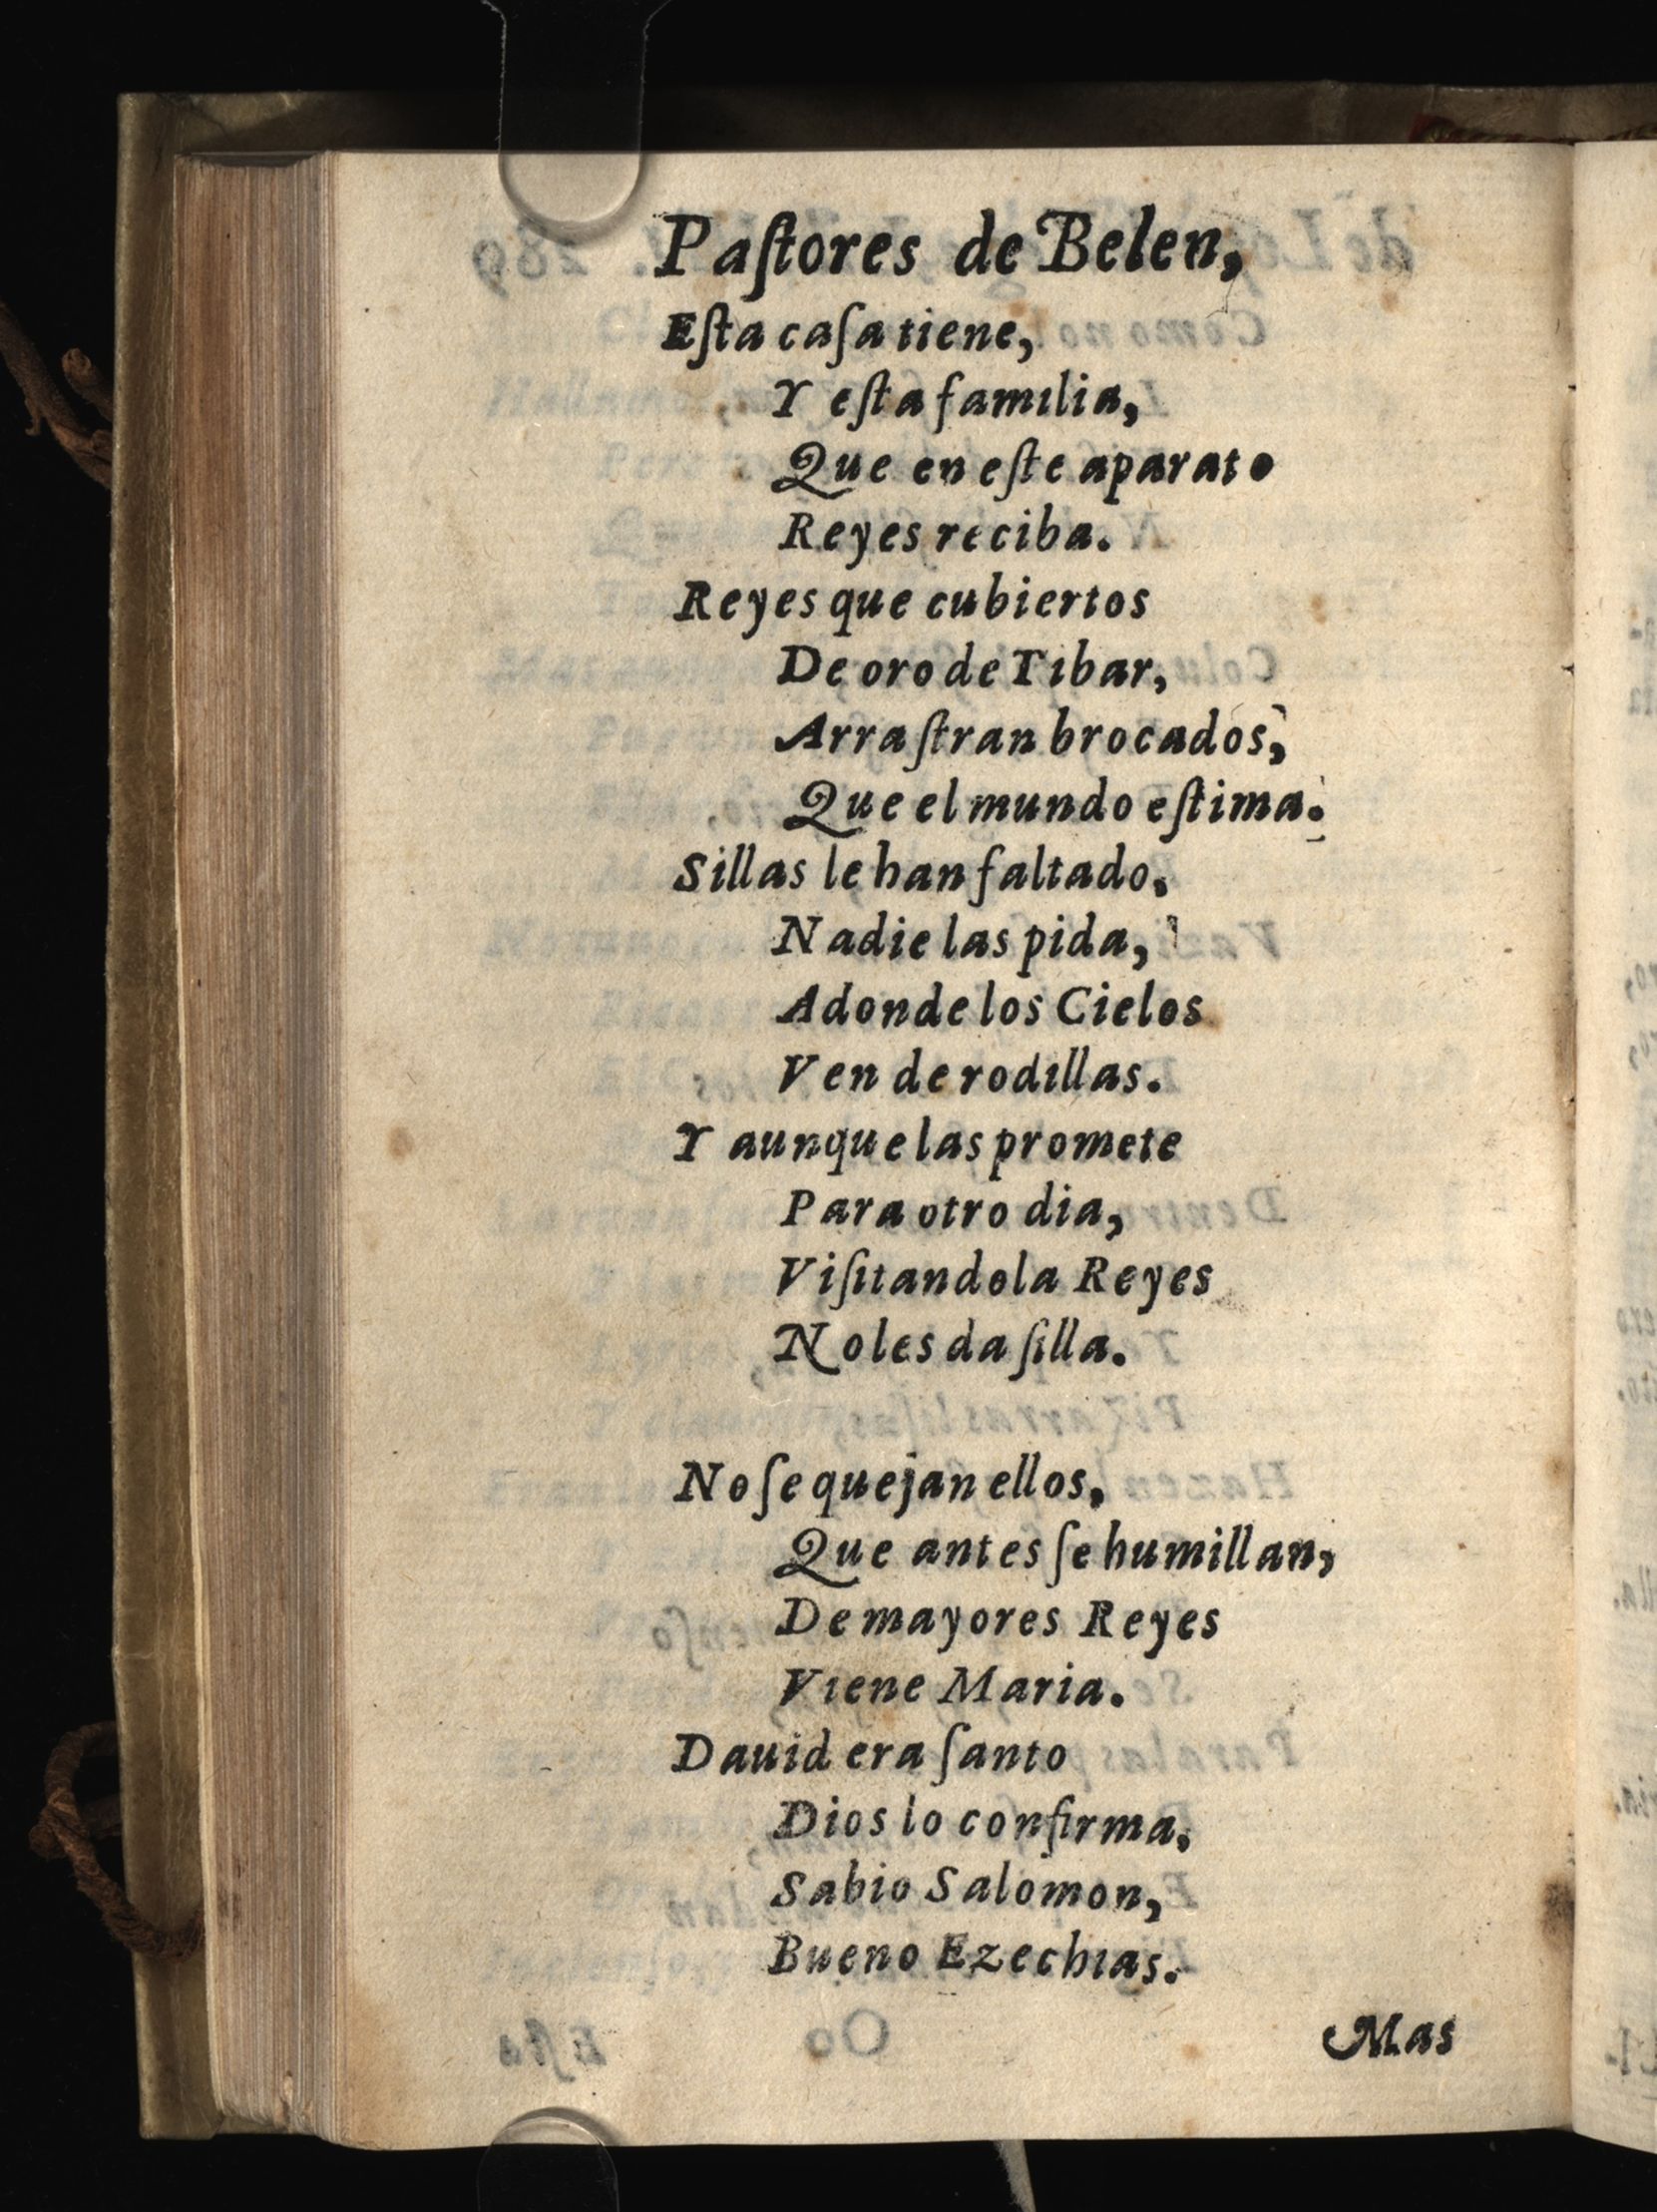 Paſtores de Belen,
Eſta caſa tiene,
Y eſta familia,
Que en eſte aparato
Reyes reciba.
Reyes que cubiertos
De oro de Tibar,
Arraſtran brocados,
Que el mundo eſtima.
Sillas le han faltado,
Nadie las pida,
Adonde los Cielos
Ven de rodillas.
Y aunque las promete
Para otro dia,
Viſitandola Reyes
No les da ſilla.
No ſe quejan ellos,
Que antes ſe humillan,
De mayores Reyes
Viene Maria.
Dauid era ſanto
Dios lo confirma,
Sabio Salomon,
Bueno Ezechias.
Mas